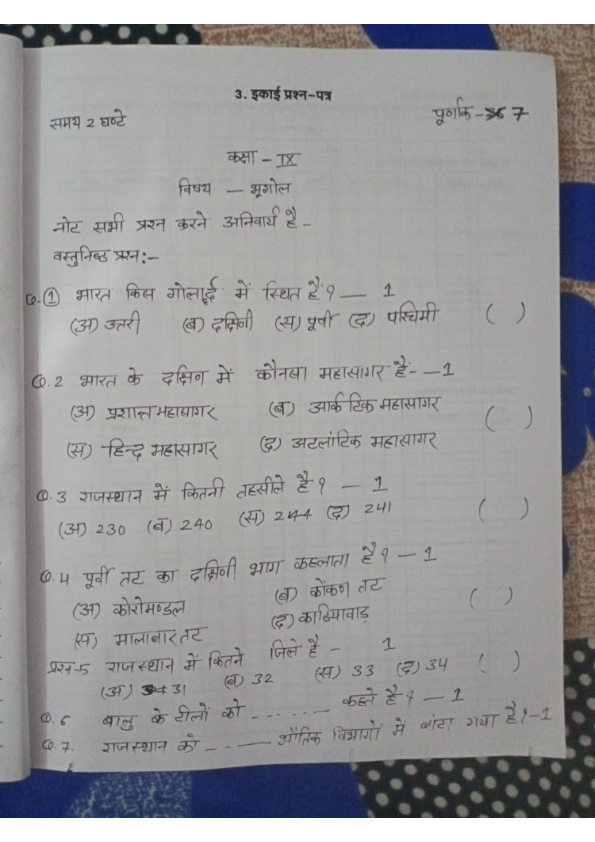 3. इकाई प्रश्न-पत्र
समय 2 घण्टे पूर्णांक - 7
कक्षा - IX
विषय - भूगोल
नोट सभी प्रश्न करने अनिवार्य है -
वस्तुनिष्ठ प्रश्न:-
Q.① भारत किस गोलार्द्ध में स्थित है? - 1
(अ) उत्तरी (ब) दक्षिणी (स) पूर्वी (द) पश्चिमी ( )
Q.2 भारत के दक्षिण में कौनसा महासागर है- -1
(अ) प्रशान्त महासागर (ब) आर्कटिक महासागर ( )
(स) हिन्द महासागर (द) अटलांटिक महासागर
Q.3 राजस्थान में कितनी तहसीले है? - 1
(अ) 230 (ब) 240 (स) 244 (द) 241 ( )
Q.4 पूर्वी तट का दक्षिणी भाग कहलाता है? - 1
(अ) कोरोमण्डल (ब) कोंकण तट ( )
(स) मालाबार तट (द) काठियावाड़
प्रश्न-5 राजस्थान में कितने जिले है - 1
(अ) 31 (ब) 32 (स) 33 (द) 34 ( )
Q.6 बालु के टीलों को ------- कहते है? - 1
Q.7. राजस्थान को ------ भौतिक विभागों में बांटा गया है।-1